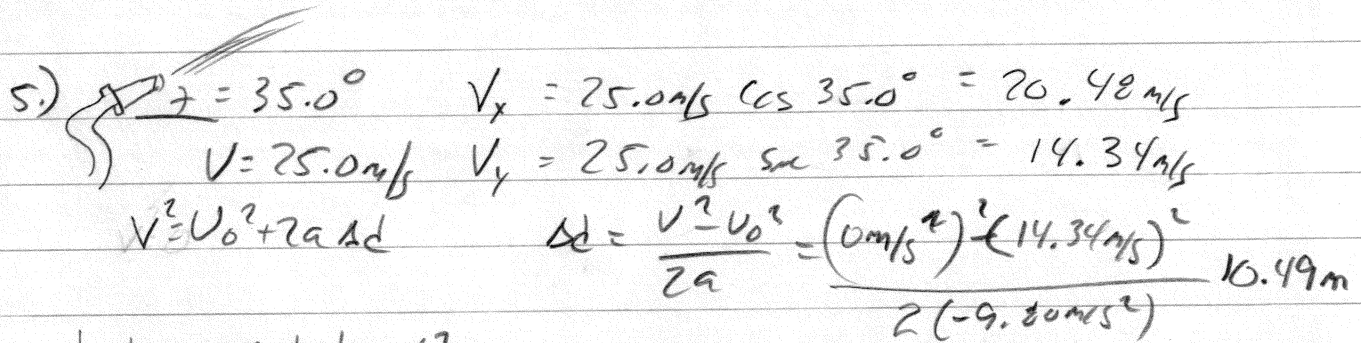 5.) = 35.0° Vx = 25.0m/s Cos 35.0° = 20.48m/s
V = 25.0m/s Vy = 25.0m/s Sin 35.0° = 14.34m/s
V² = V₀² + 2a Δd Δd = (V² - V₀²)/2a = (0m/s²)² - (14.34m/s)² / 2(-9.80m/s²) 10.49m